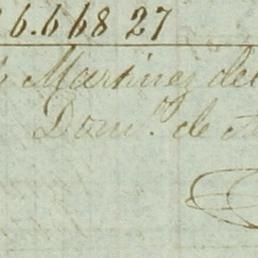 6.668 27
Martinez del
Dom.º de